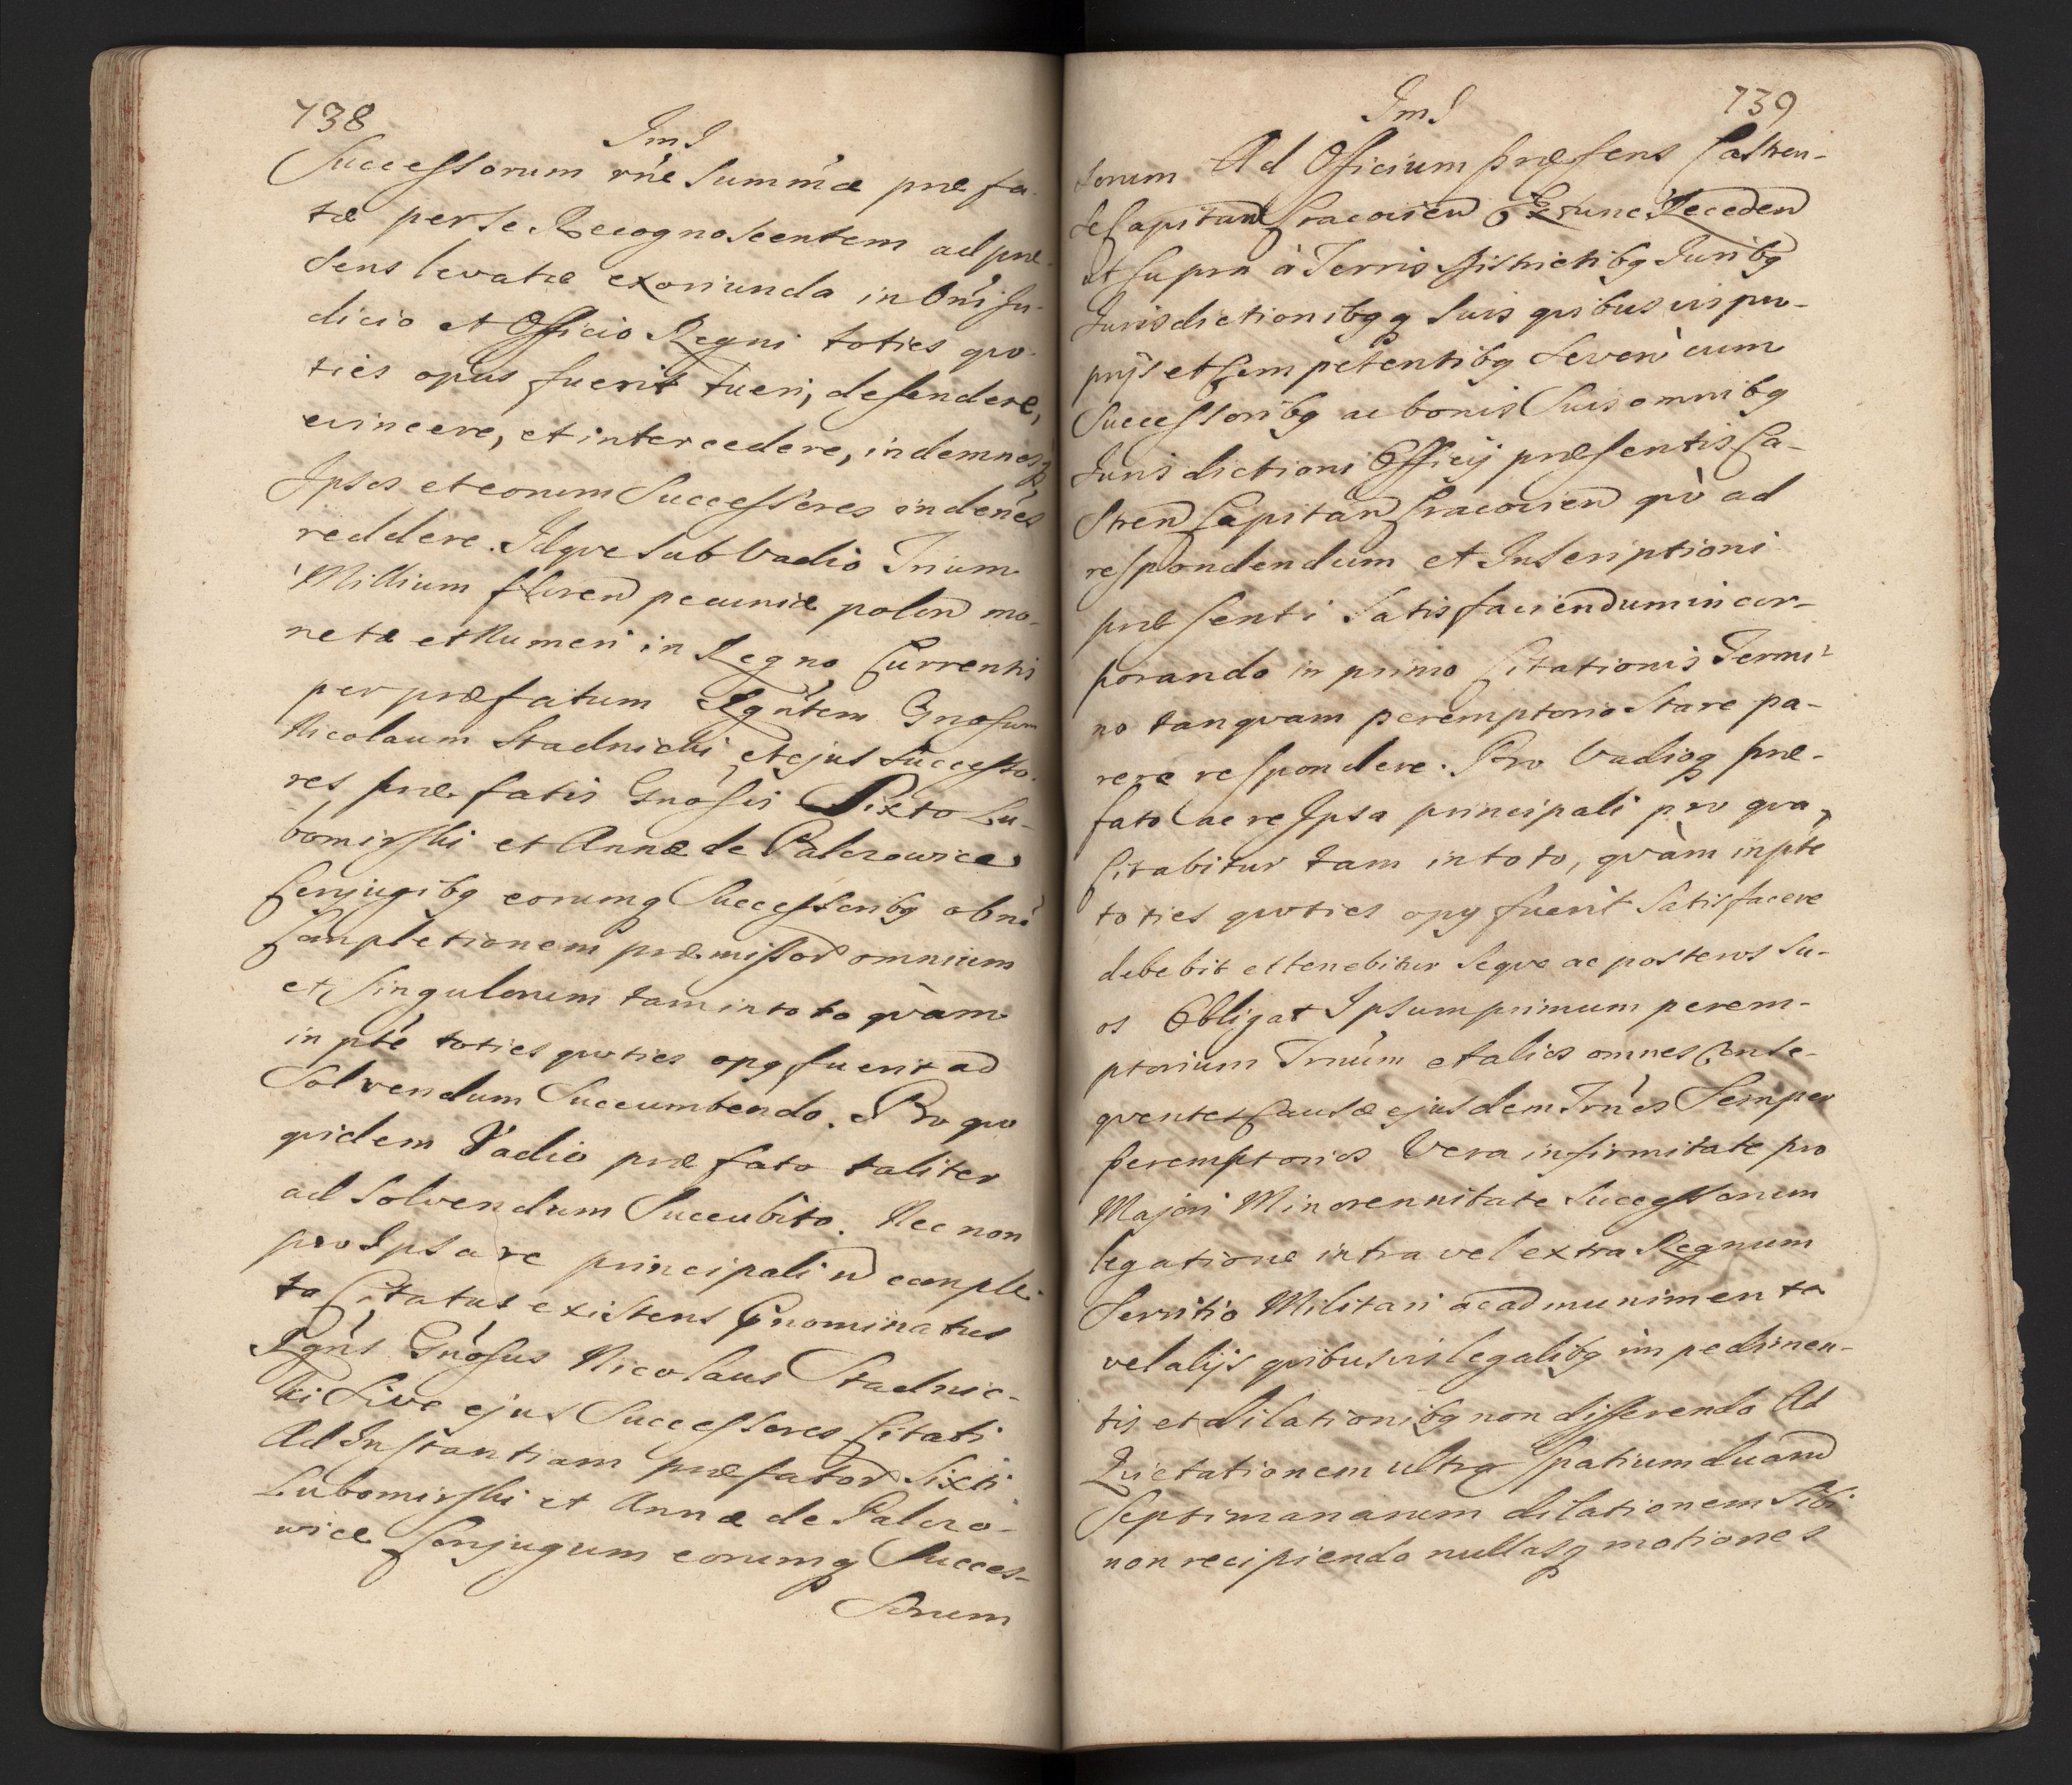 738
JmJ
Successorum rñe summæ præfa-
tæ per se Recognoscentem ad præ-
sens levatæ exoriunda in Oñi Ju-
dicio et Officio Regni toties quo-
ties opus fuerit tueri, defendere,
evincere, et intercedere, indemnesq
Ipsos et eorum Successores indeñes
reddere. Idque sub Vadio Trium
Millium floren pecuniæ polon mo-
netæ et Numeri in Regno Currenti
per præfatum Rgñtem Gnosum
Nicolaum Stadnicki et ejus Successo-
res præfatis Gnósis Sixto Lu-
bomirski et Annæ de Palczowice
Conjugibq eorumq Successoribq ob nò
Completionem præmissor omnium
et singulorum tam in toto quàm
in pte toties quoties opq fuerit ad
Solvendum Succumbendo. Pro quo
quidem Vadio præfato taliter
ad solvendum Succubito. Nec non
pro Ipsa re principali ñ comple-
ta Citatus existens Prænominatus
Rgñs Gnósus Nicolaus Stadnic-
ki Sive ejus Successores Citati
Ad Instantiam præfator Sixti
Lubomirski et Annæ de Palczo-
wice Conjugum eorumq Succes-
sorum
JmJ
739
sorum Ad Officium præsens Castren-
se Capitan Cracovien Extunc Receden
ut supra à Terris Districtibq Juribq
Jurisdictionibqq suis quibusvis pro-
prijs et Competentibq Severi cum
Successoribq ac bonis Suis omnibq
Jurisdictioni Officij præsentis Ca-
stren Capitan Cracovien quò ad
respondendum et Inscriptioni
præsenti satisfaciendum incor-
porando in primo Citationis Termi-
no tanquam peremptorio Stare pa-
rere respondere. Pro Vadioq præ-
fato ac re Ipsa principali pro qua
Citabitur tam in toto, quàm in pte
toties quoties opq fuerit satisfacere
debebit et tenebitur seque ac posteros su-
os Obligat Ipsum primum perem-
ptorium Trñum et alios omnes Conse-
quentes Causæ ejusdem Trños Semper
peremptorios Vera infirmitate pro
Majori Minorennitate Successorum
legatione intra vel extra Regnum
Servitio Militari ac ad munimenta
vel alijs quibusvis legalibq impedimen-
tis et dilationibq non differendo Ad
Quietationem ultra Spatium duar
Septimanarum dilationem Sibi
non recipiendo nullasq motiones